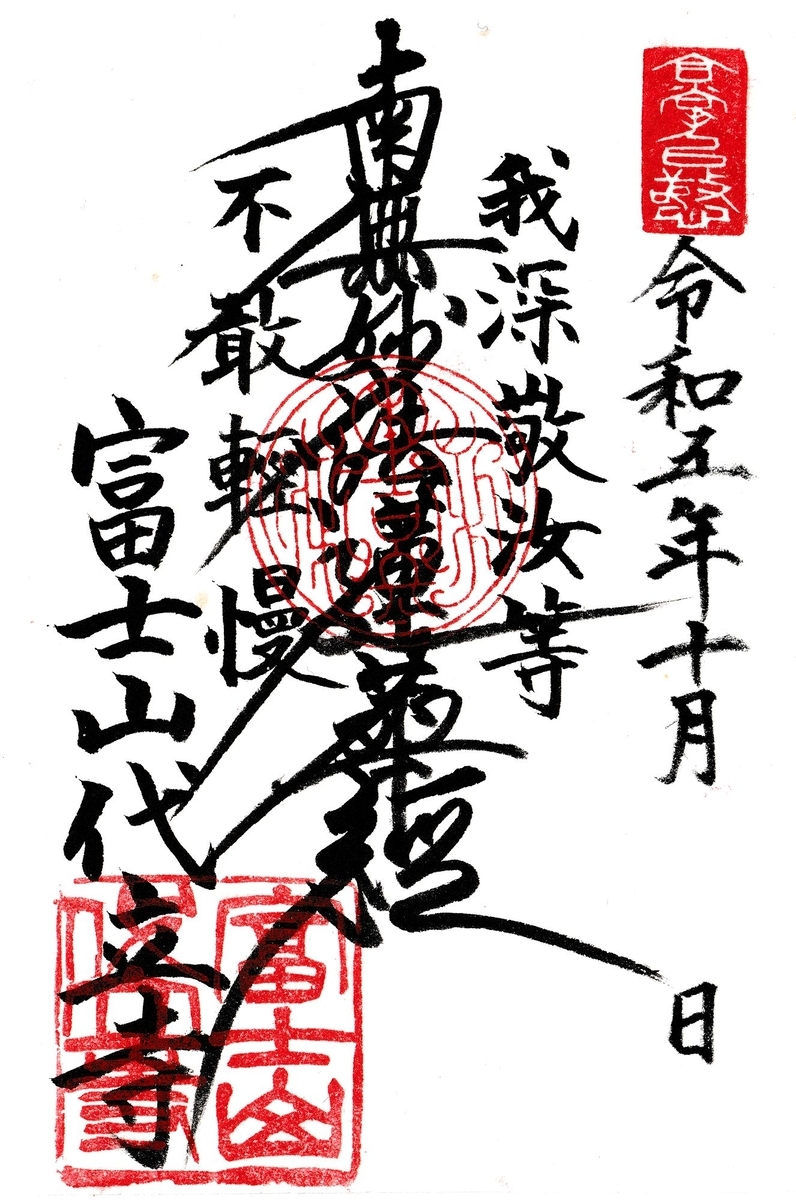 令和五年十月 日
我深敬汝等
南無妙法蓮華經
不敢輕慢
富士山代立寺
富士山